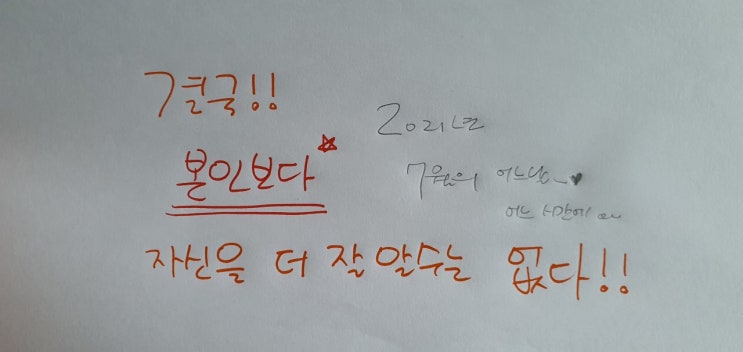 결국!!
본인보다
자신을 더 잘 알수는 없다!!
2021년
7월의 어느날_♥
어느 시간에